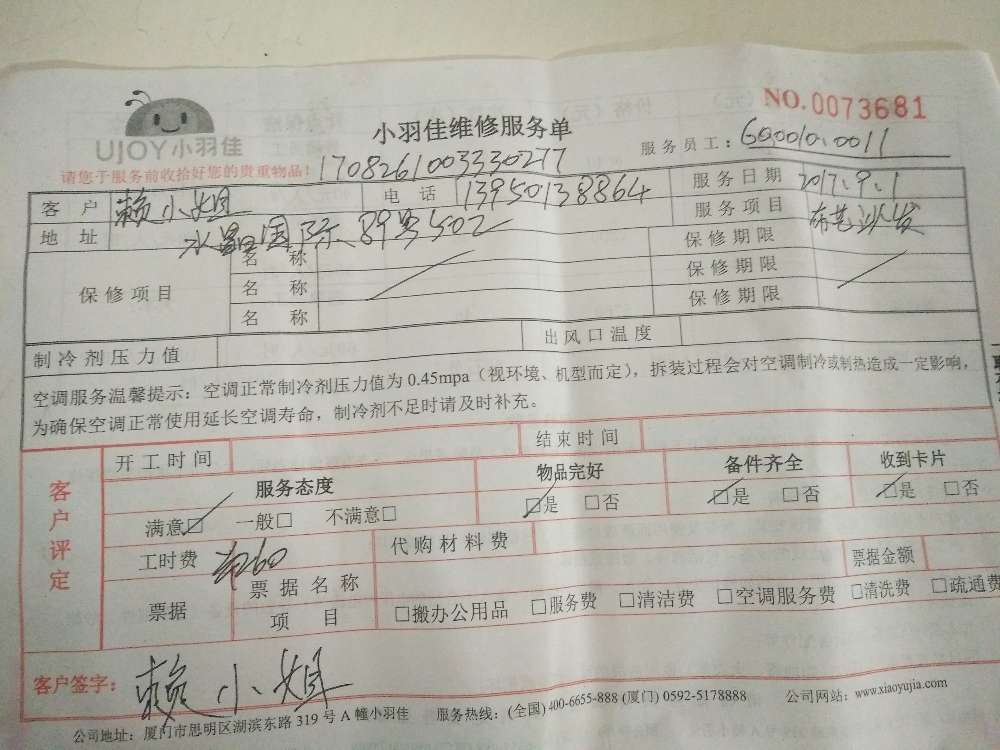 UJOY小羽佳
小羽佳维修服务单
NO.0073681
请您于服务前收拾好您的贵重物品!
1708261003330277
服务员工:600010.0011
客户 赖小姐 电话 13950138864 服务日期 2017.9.1
地址 水晶国际89号502 服务项目 布艺沙发
保修项目 名称 保修期限
名称 保修期限
名称 保修期限
制冷剂压力值 出风口温度
空调服务温馨提示:空调正常制冷剂压力值为0.45mpa(视环境、机型而定),拆装过程会对空调制冷或制热造成一定影响,
为确保空调正常使用延长空调寿命,制冷剂不足时请及时补充。
客户评定
开工时间 结束时间
服务态度 物品完好 备件齐全 收到卡片
满意□ 一般□ 不满意□ □是 □否 □是 □否 □是 □否
工时费 60 代购材料费
票据 票据名称 票据金额
项目 □搬办公用品 □服务费 □清洁费 □空调服务费 □清洗费 □疏通费
客户签字:赖小姐
公司地址:厦门市思明区湖滨东路319号A幢小羽佳 服务热线:(全国)400-6655-888(厦门)0592-5178888 公司网站:www.xiaoyujia.com